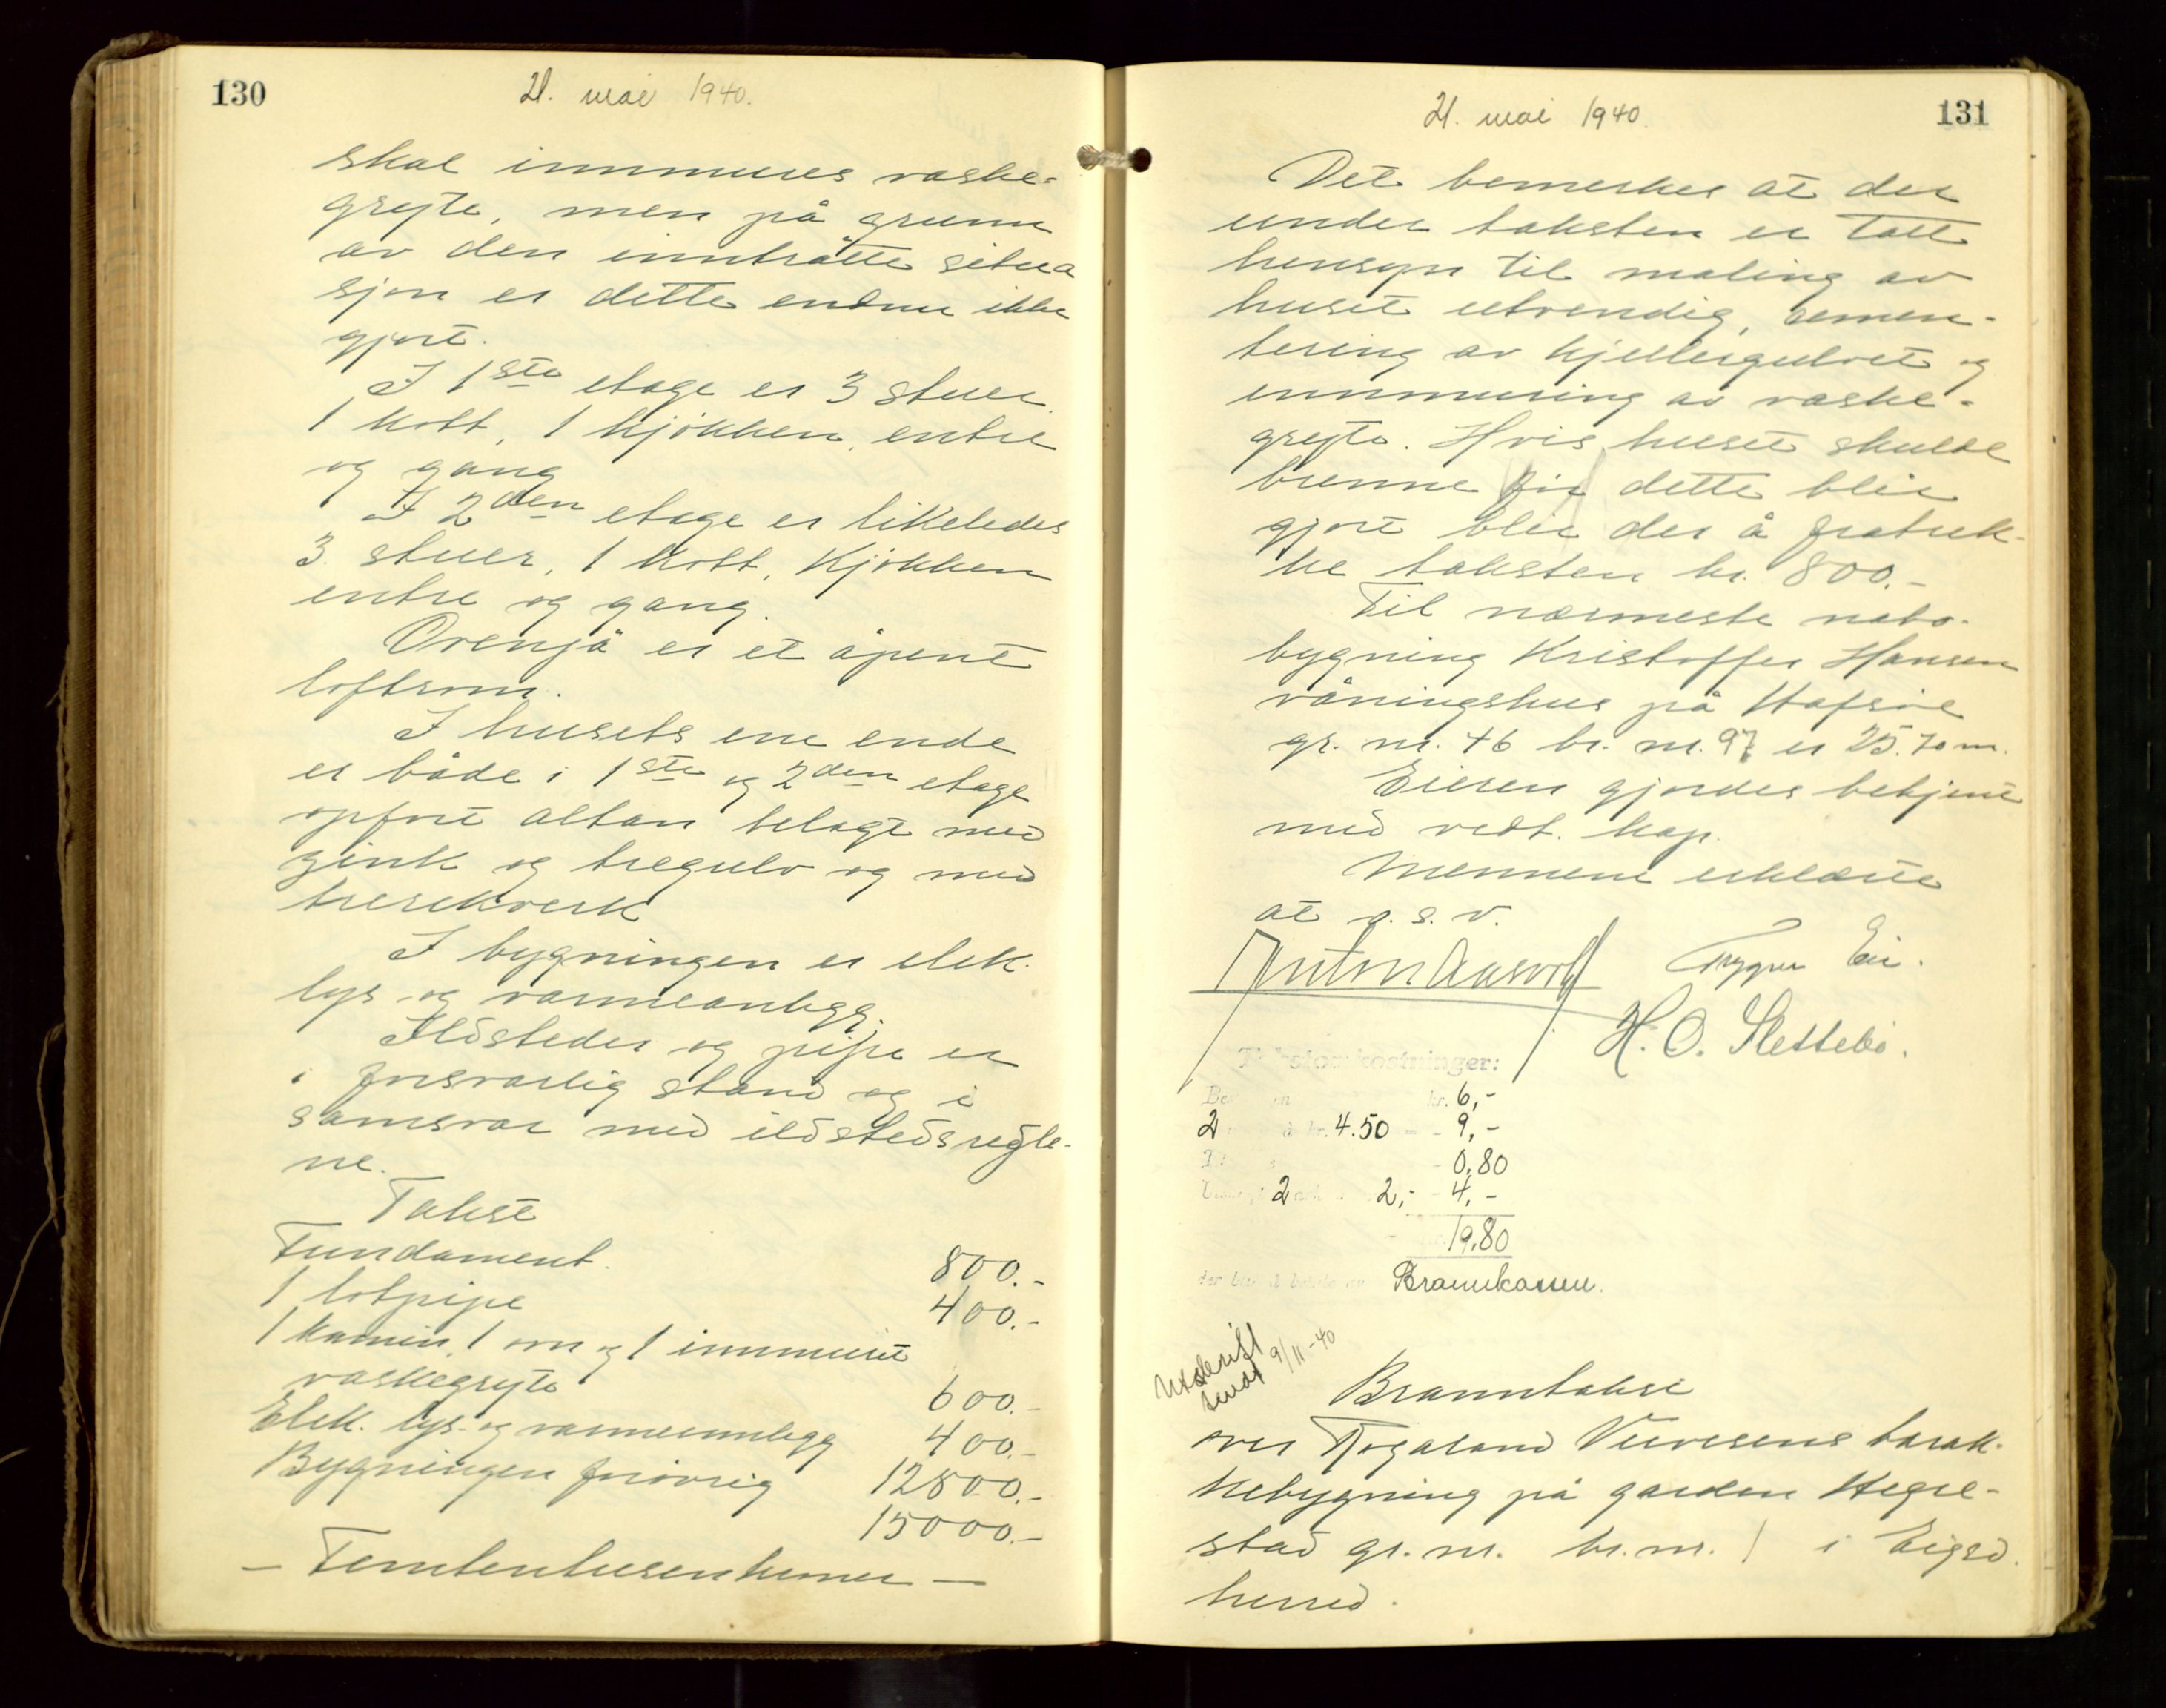 130
21. mai 1940.
skal innmures vaske-
gryte, men på grunn
av den inntrådte situa
sjon er dette endnu ikke
gjort.
I 1ste etage er 3 stuer
1 kott, 1 kjökken, entre
og gang
I 2den etage er likeledes
3 stuer, 1 kott, kjökken
entre og gang.
Ovenpå er et åpent
loftsrom.
I husets ene ende
er både i 1ste og 2den etage
opfört altan belagt med
zink og tregulv og med
trerekkverk
I bygningen er elek.
lys og varmeanlegg.
Ildsteder og pipe er
i forsvarlig stand og i
samsvar med ildstedsregle-
ne.
Takst
Fundament. 800.-
1 lotpipe 400.-
1 kamin, 1 ovn og 1 innmuret
vaskegryte 600.-
Elek. lys- og varmeinnlegg 400.-
Bygningen forövrig 12800.-
15000.-
— Femtentusen kroner —
131
21. mai 1940.
Det bemerkes at der
under taksten er tatt
hensyn til maling av
huset utvendig, semen-
tering av kjellergulvet og
innmuring av vaske-
gryte. Hvis huset skulde
brenne för dette blir
gjort blir der å fratrek-
ke taksten kr. 800.-
Til nærmeste nabo-
bygning Kristoffer Hansen
våningshus på Hafsöe
gr. nr. 46 br. nr. 97 er 25.70 m.
Eieren gjordes bekjent
med vedt. kap.
Mennene erklærte
at o.s.v.
Trygve Eie.
H. O. Slettebö.
Takstomkostninger:
kr. 6,-
2 à kr. 4.50 = - 9,-
- 0,80
2 2,- - 4,-
19,80
der blir å betale av Brannkassen.
Utskrift
sendt 9/11-40
Branntakst
over Rogaland Veivesens barak-
kebygning på garden Hegre-
stad gr. nr. br. nr. 1 i Eigsd.
herred.